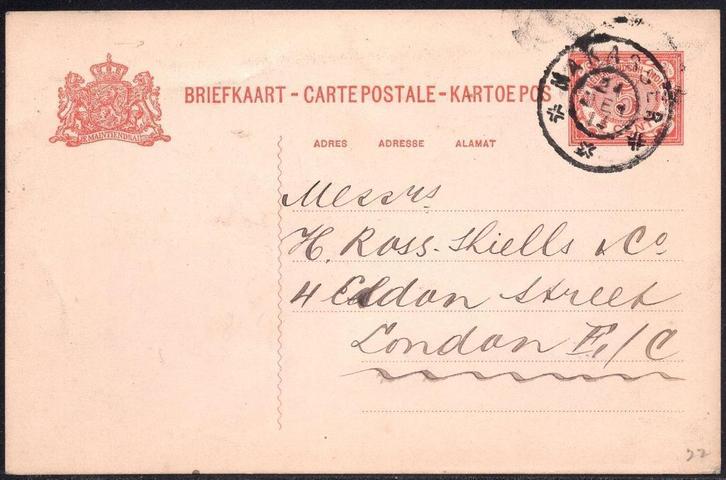 BRIEFKAART - CARTE POSTALE - KARTOE POS
MAKASSER
JE MAINTIENDRAI
ADRES ADRESSE ALAMAT
Messrs
H. Ross-Shiells & Co
4 Eldon Street
London E/C
22